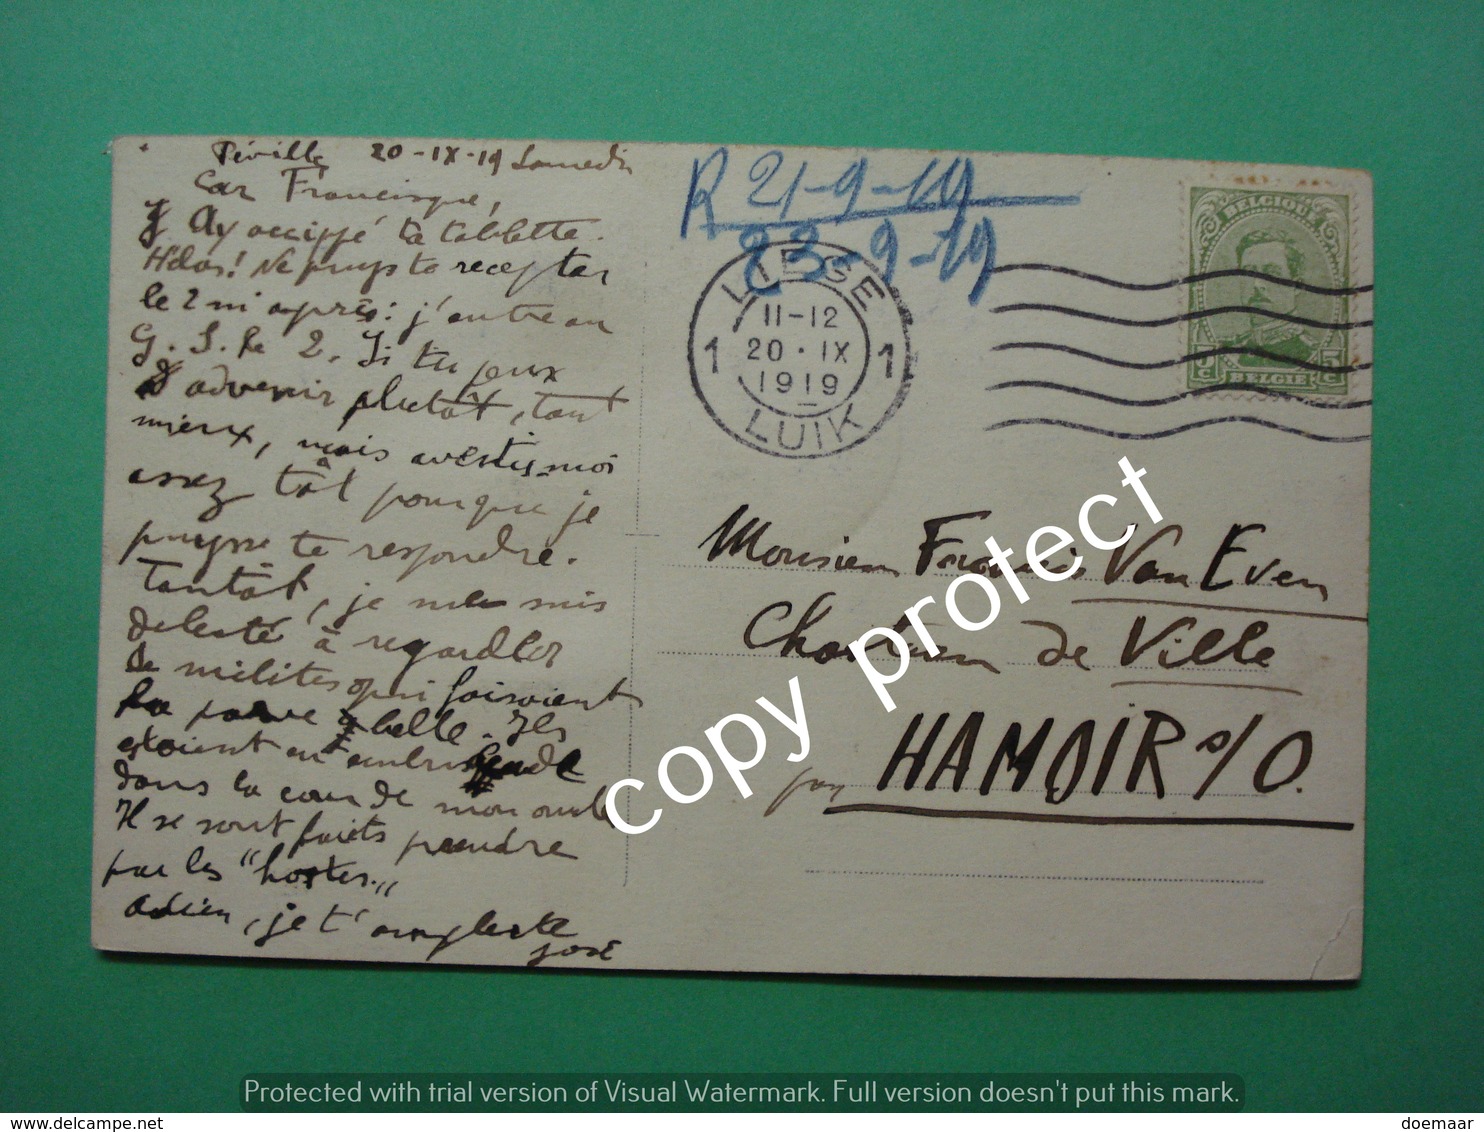 Péville 20-IX-19 Samedi
Car Francisque,
J'Ay accippé ta tablette.
Hélas! Ne puys te recepter
le 2 ni après: j'entre au
G. S. le 2. Si tu peux
advenir plutôt, tant
mieux, mais avertis-moi
assez tôt pour que je
puysse te respondre.
Tantôt, je me suis
delesté à regardler
le milites qui faisoient
la parve belle. Ils
estoient en
dans la cour de mon oncle
Il se sont faicts prendre
par les "hostes„
Adieu, je t'
José
R 21-9-19
23-9-19
LIEGE
11-12
1 20·IX 1
1919
LUIK
BELGIQUE
5 c 5 c
BELGIE
Monsieur Francis Van Even
de Ville
par HAMOIR s/O.
copy protect
Protected with trial version of Visual Watermark. Full version doesn't put this mark.
www.delcampe.net
doemaar